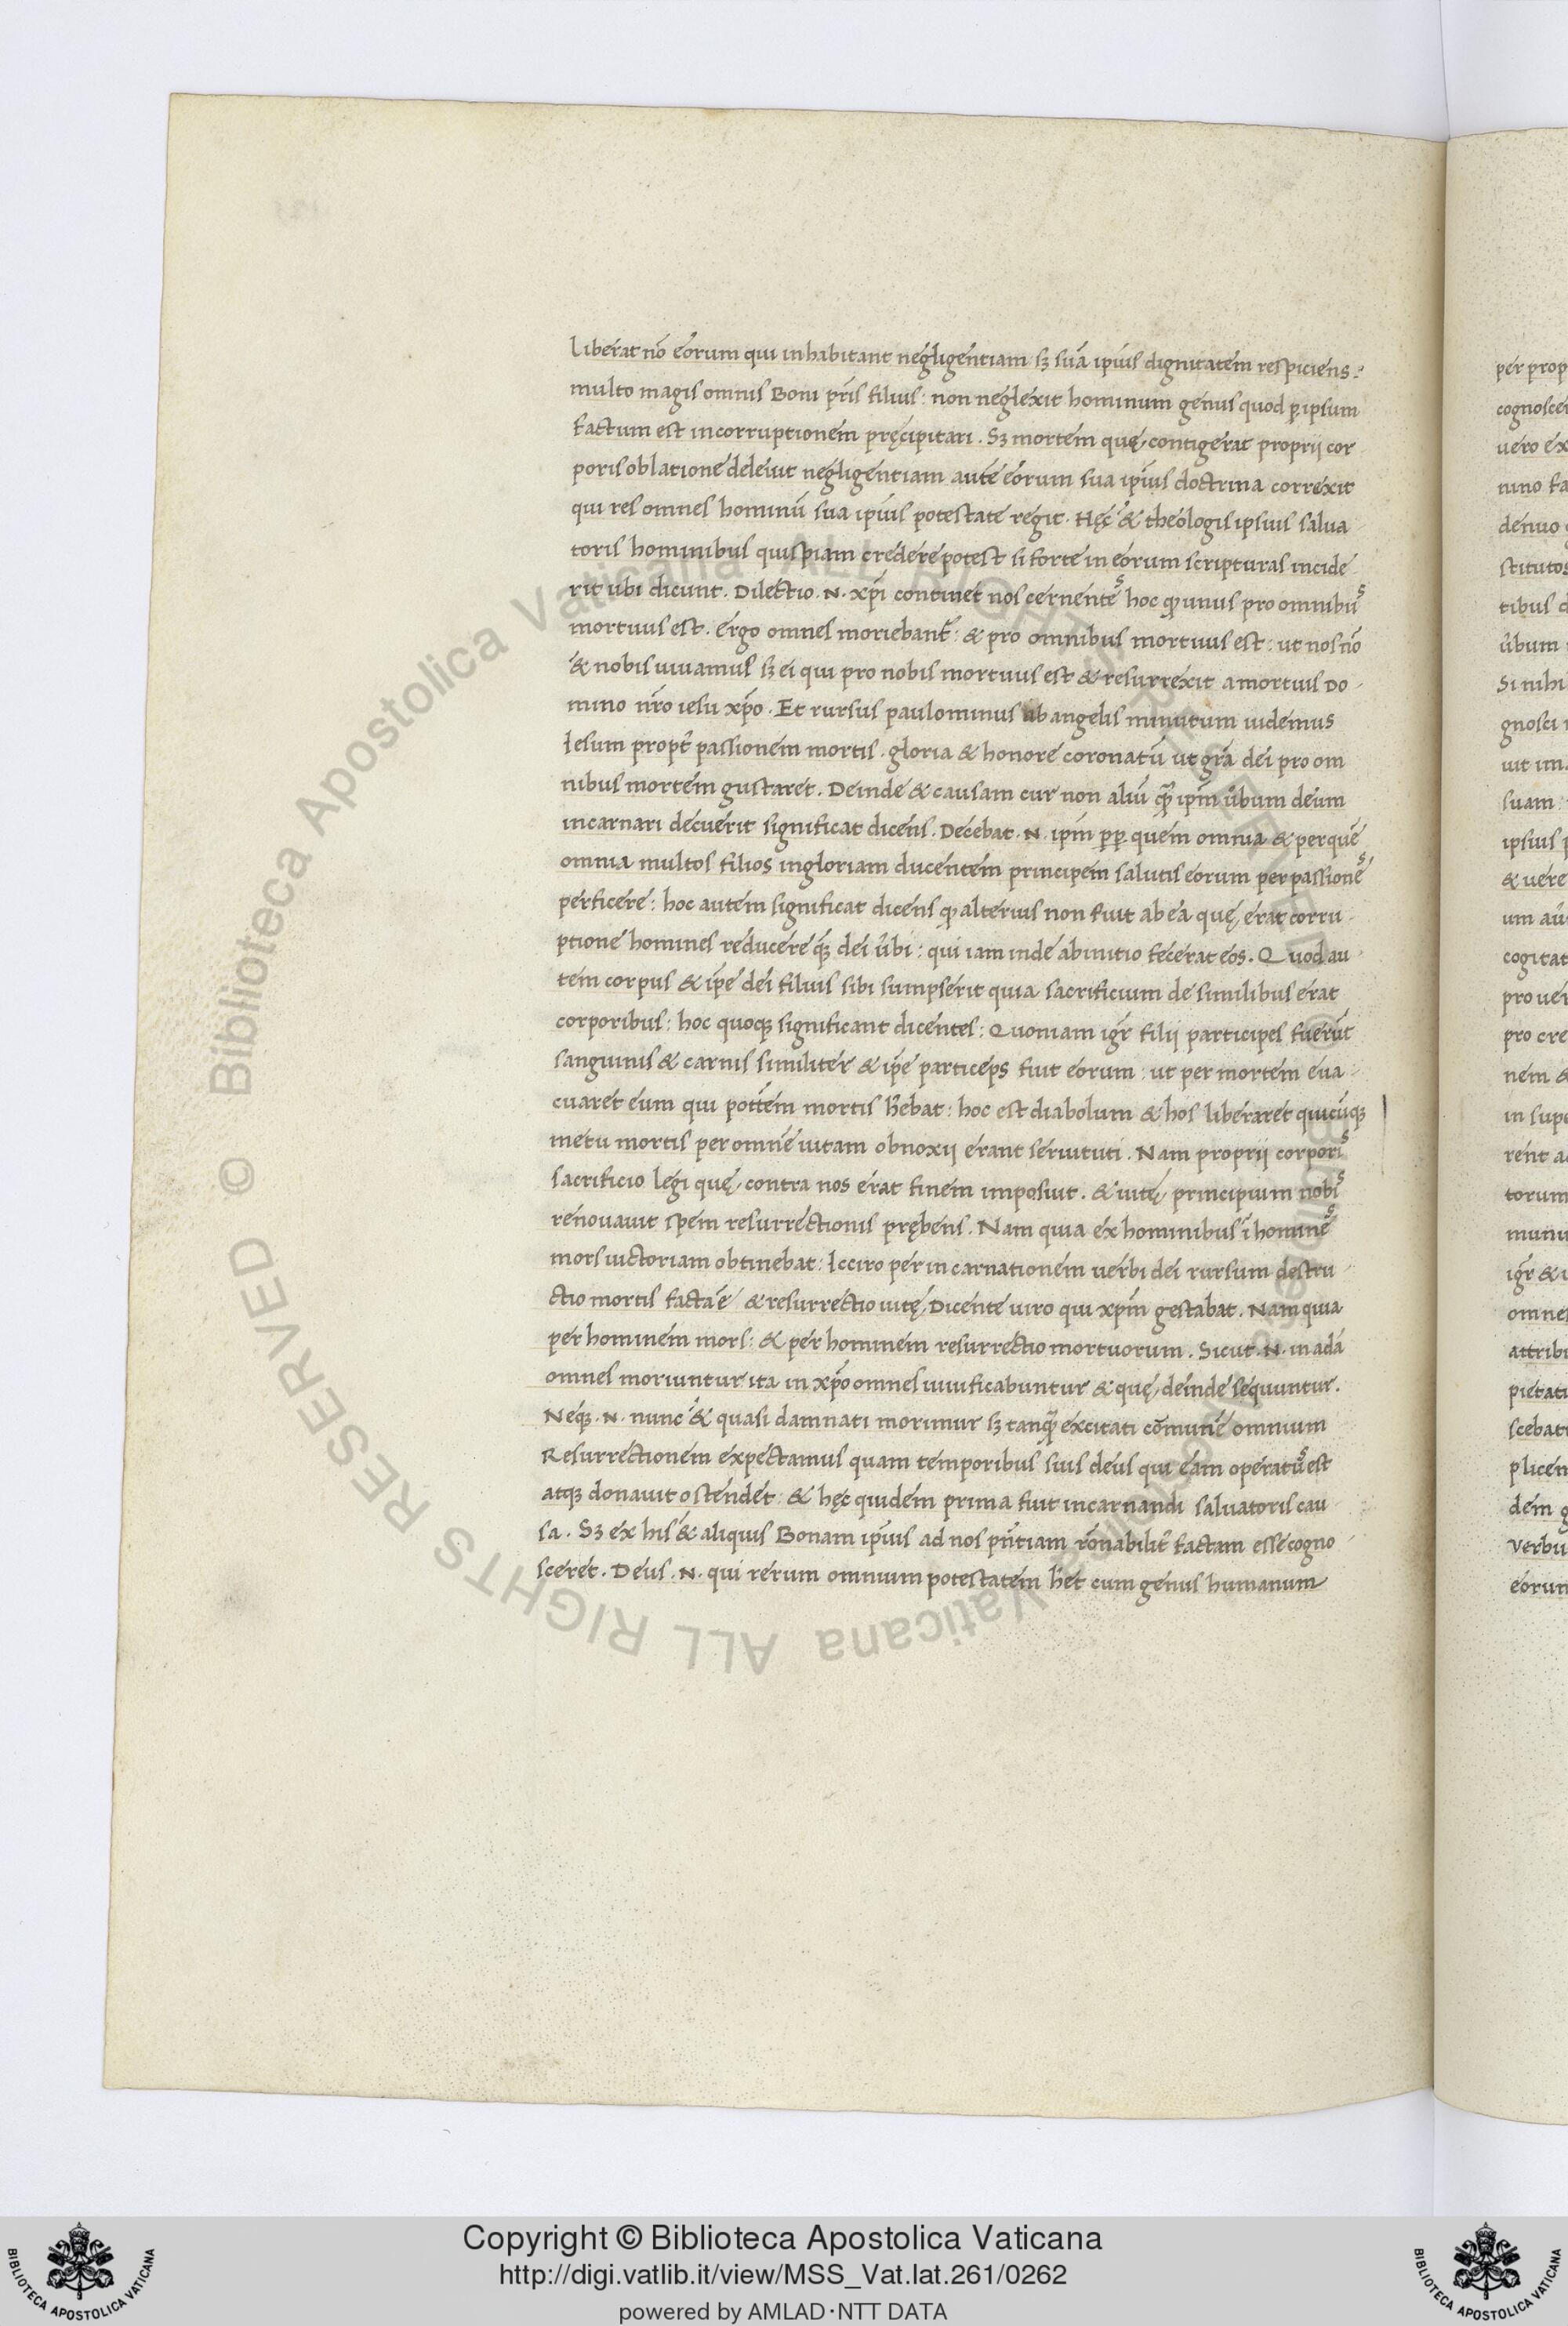 Liberat nō eorum qui inhabitant negligentiam sꝫ suā ipius dignitatem respiciens:
multo magis omnis Boni pr̄is filius: non neglexit hominum genus quod ꝑ ipsum
factum est incorruptionem pręcipitari. Sꝫ mortem quę contigerat proprij cor
poris oblatione deleuit negligentiam autē eorum sua ipius doctrina correxit
qui res omnes hominū sua ipius potestate regit. Hęc & theologis ipsius salua
toris hominibus quispiam credere potest si forte in eorum scripturas incide
rit ubi dicunt. Dilectio .N. xp̄i continet nos cernentēs hoc ꝙ unus pro omnibus
mortuus est. ergo omnes moriebant̄: & pro omnibus mortuus est: ut nos nō
& nobis uiuamus sꝫ ei qui pro nobis mortuus est & resurrexit a mortuis Do
mino nr̄o iesu xp̄o. Et rursus paulominus ab angelis minutum uidemus
Iesum propt̄ passionem mortis. gloria & honore coronatū ut gr̄a dei pro om
nibus mortem gustaret. Deinde & causam cur non aliū ꝙ̄ ip̄m ūbum deum
incarnari decuerit significat dicens. Decebat .N. ip̄m ꝑꝑ quem omnia & per quē
omnia multos filios in gloriam ducentem principem salutis eorum per passiones
perficere: hoc autem significat dicens ꝙ alterius non fuit ab ea quę erat corru
ptione homines reducere qꝫ dei ūbi: qui iam inde ab initio fecerat eos. Quod au
tem corpus & ip̄e dei filius sibi sumpserit quia sacrificium de similibus erat
corporibus: hoc quoqꝫ significant dicentes: Quoniam igr̄ filij participes fuerūt
sanguinis & carnis similiter & ip̄e particeps fuit eorum: ut per mortem eua
cuaret eum qui pot̄tem mortis h̄ebat: hoc est diabolum & hos liberaret quicūqꝫ
metu mortis per omnē uitam obnoxij erant seruituti. Nam proprij corporis
sacrificio legi quę contra nos erat finem imposuit. & uitę principium nobis
renouauit spem resurrectionis prębens. Nam quia ex hominibus ī homines
mors uictoriam obtinebat: Icciro per incarnationem uerbi dei rursum destru
ctio mortis facta ē & resurrectio uitę, Dicente uiro qui xp̄m gestabat. Nam quia
per hominem mors: & per hominem resurrectio mortuorum. Sicut .N. in adā
omnes moriuntur ita in xp̄o omnes uiuificabuntur & quę deinde sequuntur.
Neqꝫ .N. nunc & quasi damnati morimur sꝫ tanꝙ̄ excitati cōmunē omnium
Resurrectionem expectamus quam temporibus suis deus qui eam operatus est
atqꝫ donauit ostendet: & hęc quidem prima fuit incarnandi saluatoris cau
sa. Sꝫ ex his & aliquis Bonam ipius ad nos pn̄tiam rōnabilit̄ factam esse cogno
sceret. Deus .N. qui rerum omnium potestatem h̄et cum genus humanum
per prop
cognosce
uero ex
nino fa
denuo
stitutos
tibus d
ūbum
Si nihi
gnosci
uit im
suam
ipsius p
& uere
um au
cogitat
pro uer
pro cre
nem &
in supe
rent a
torum
munu
igr̄ &
omnes
attribu
pietati
scebat
plicem
dem g
Verbu
eorum
Copyright © Biblioteca Apostolica Vaticana
http://digi.vatlib.it/view/MSS_Vat.lat.261/0262
powered by AMLAD·NTT DATA
BIBLIOTECA APOSTOLICA VATICANA
BIBLIOTECA APOSTOLICA VATICANA
© Biblioteca Apostolica Vaticana ALL RIGHTS RESERVED © Biblioteca Apostolica Vaticana ALL RIGHTS RESERVED